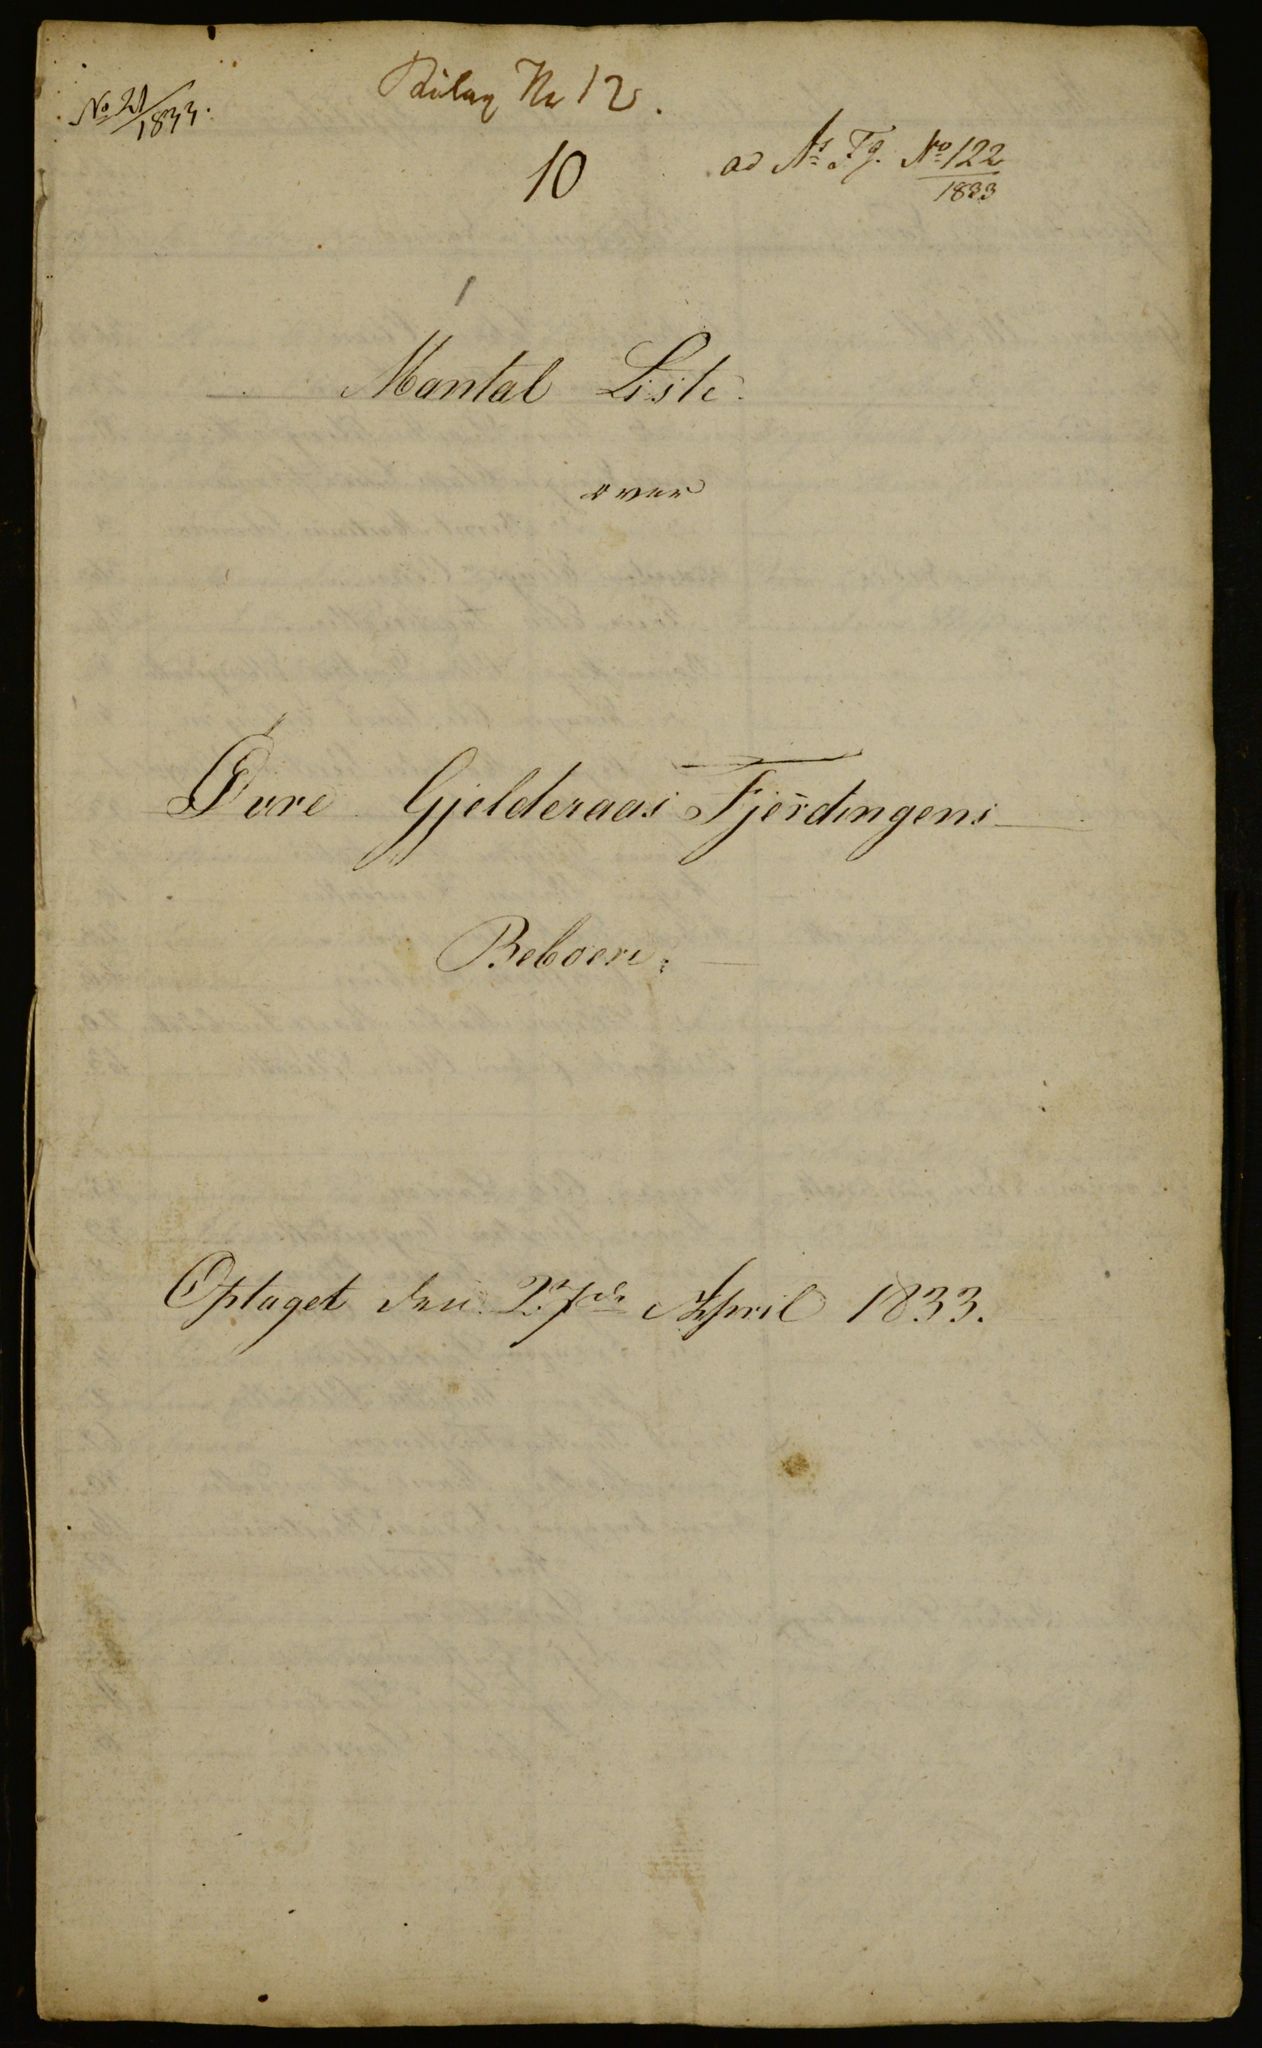 No 21/1833.
Bilag Nr 12.
10
ad Ns Fg. No 122
1833
Mantal Liste
over
Øvre Gjelderaas Fjerdingens
Beboere.
Optaget den 27de April 1833.